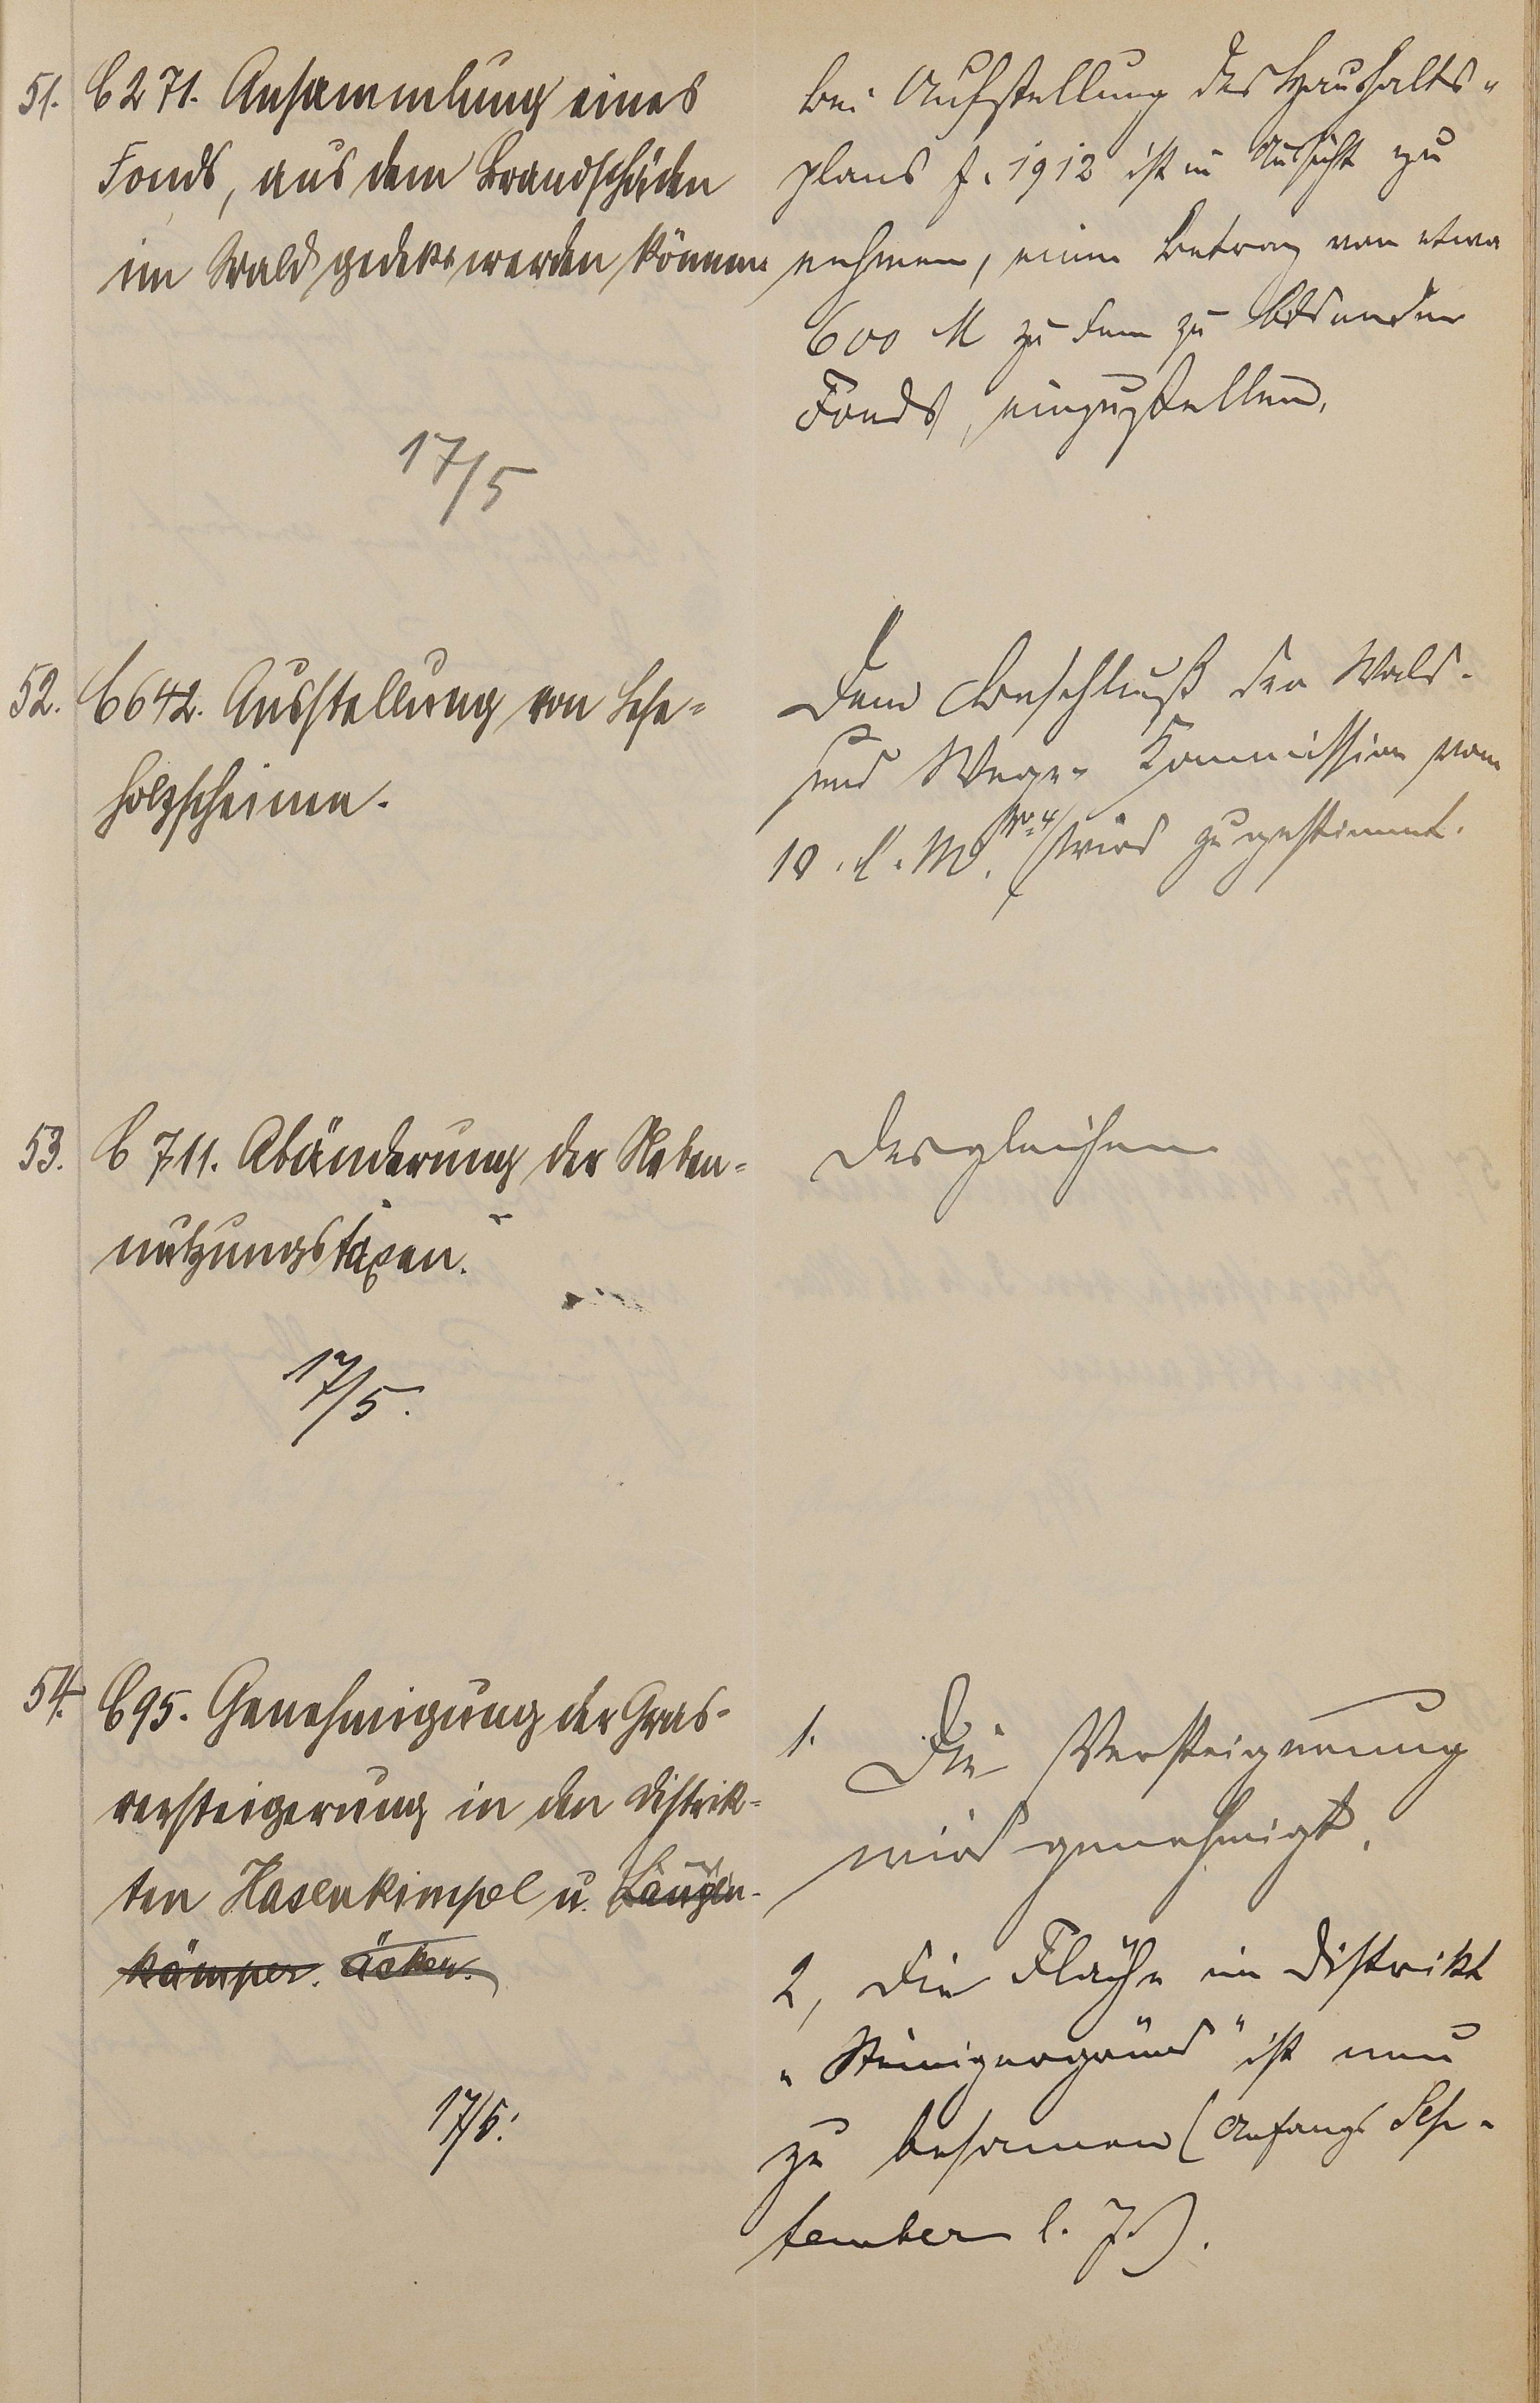 51. C 271. Ansammlung eines
Fonds, aus dem Brandschäden
im Wald gedekt werden können
17/5
Bei Aufstellung des Haushalts-
plans f. 1912 ist in Aussicht zu
nehmen, einen Betrag von etwa
600 M zu dem zu bildenden
Fonds, einzustellen.
52. C 642. Ausstellung von Lese=
holzscheinen.
Dem Beschluß der Wald-
und Wege- Kommission vom
10. l. M. wird zugestimmt.
53. C 711. Abänderung der Neben=
nutzungstaxen.
17/5.
Desgleichen
54. C 95. Genehmigung der Gras-
versteigerung in den Distrik=
ten Hasenkimpel u. Langen-
kämper. äcker.
17/5.
1. Die Versteigerung
wird genehmigt.
2, Die Fläche im Distrikt
"Steinigergrund" ist neu
zu besamen (Anfangs Sep-
tember l. J.).